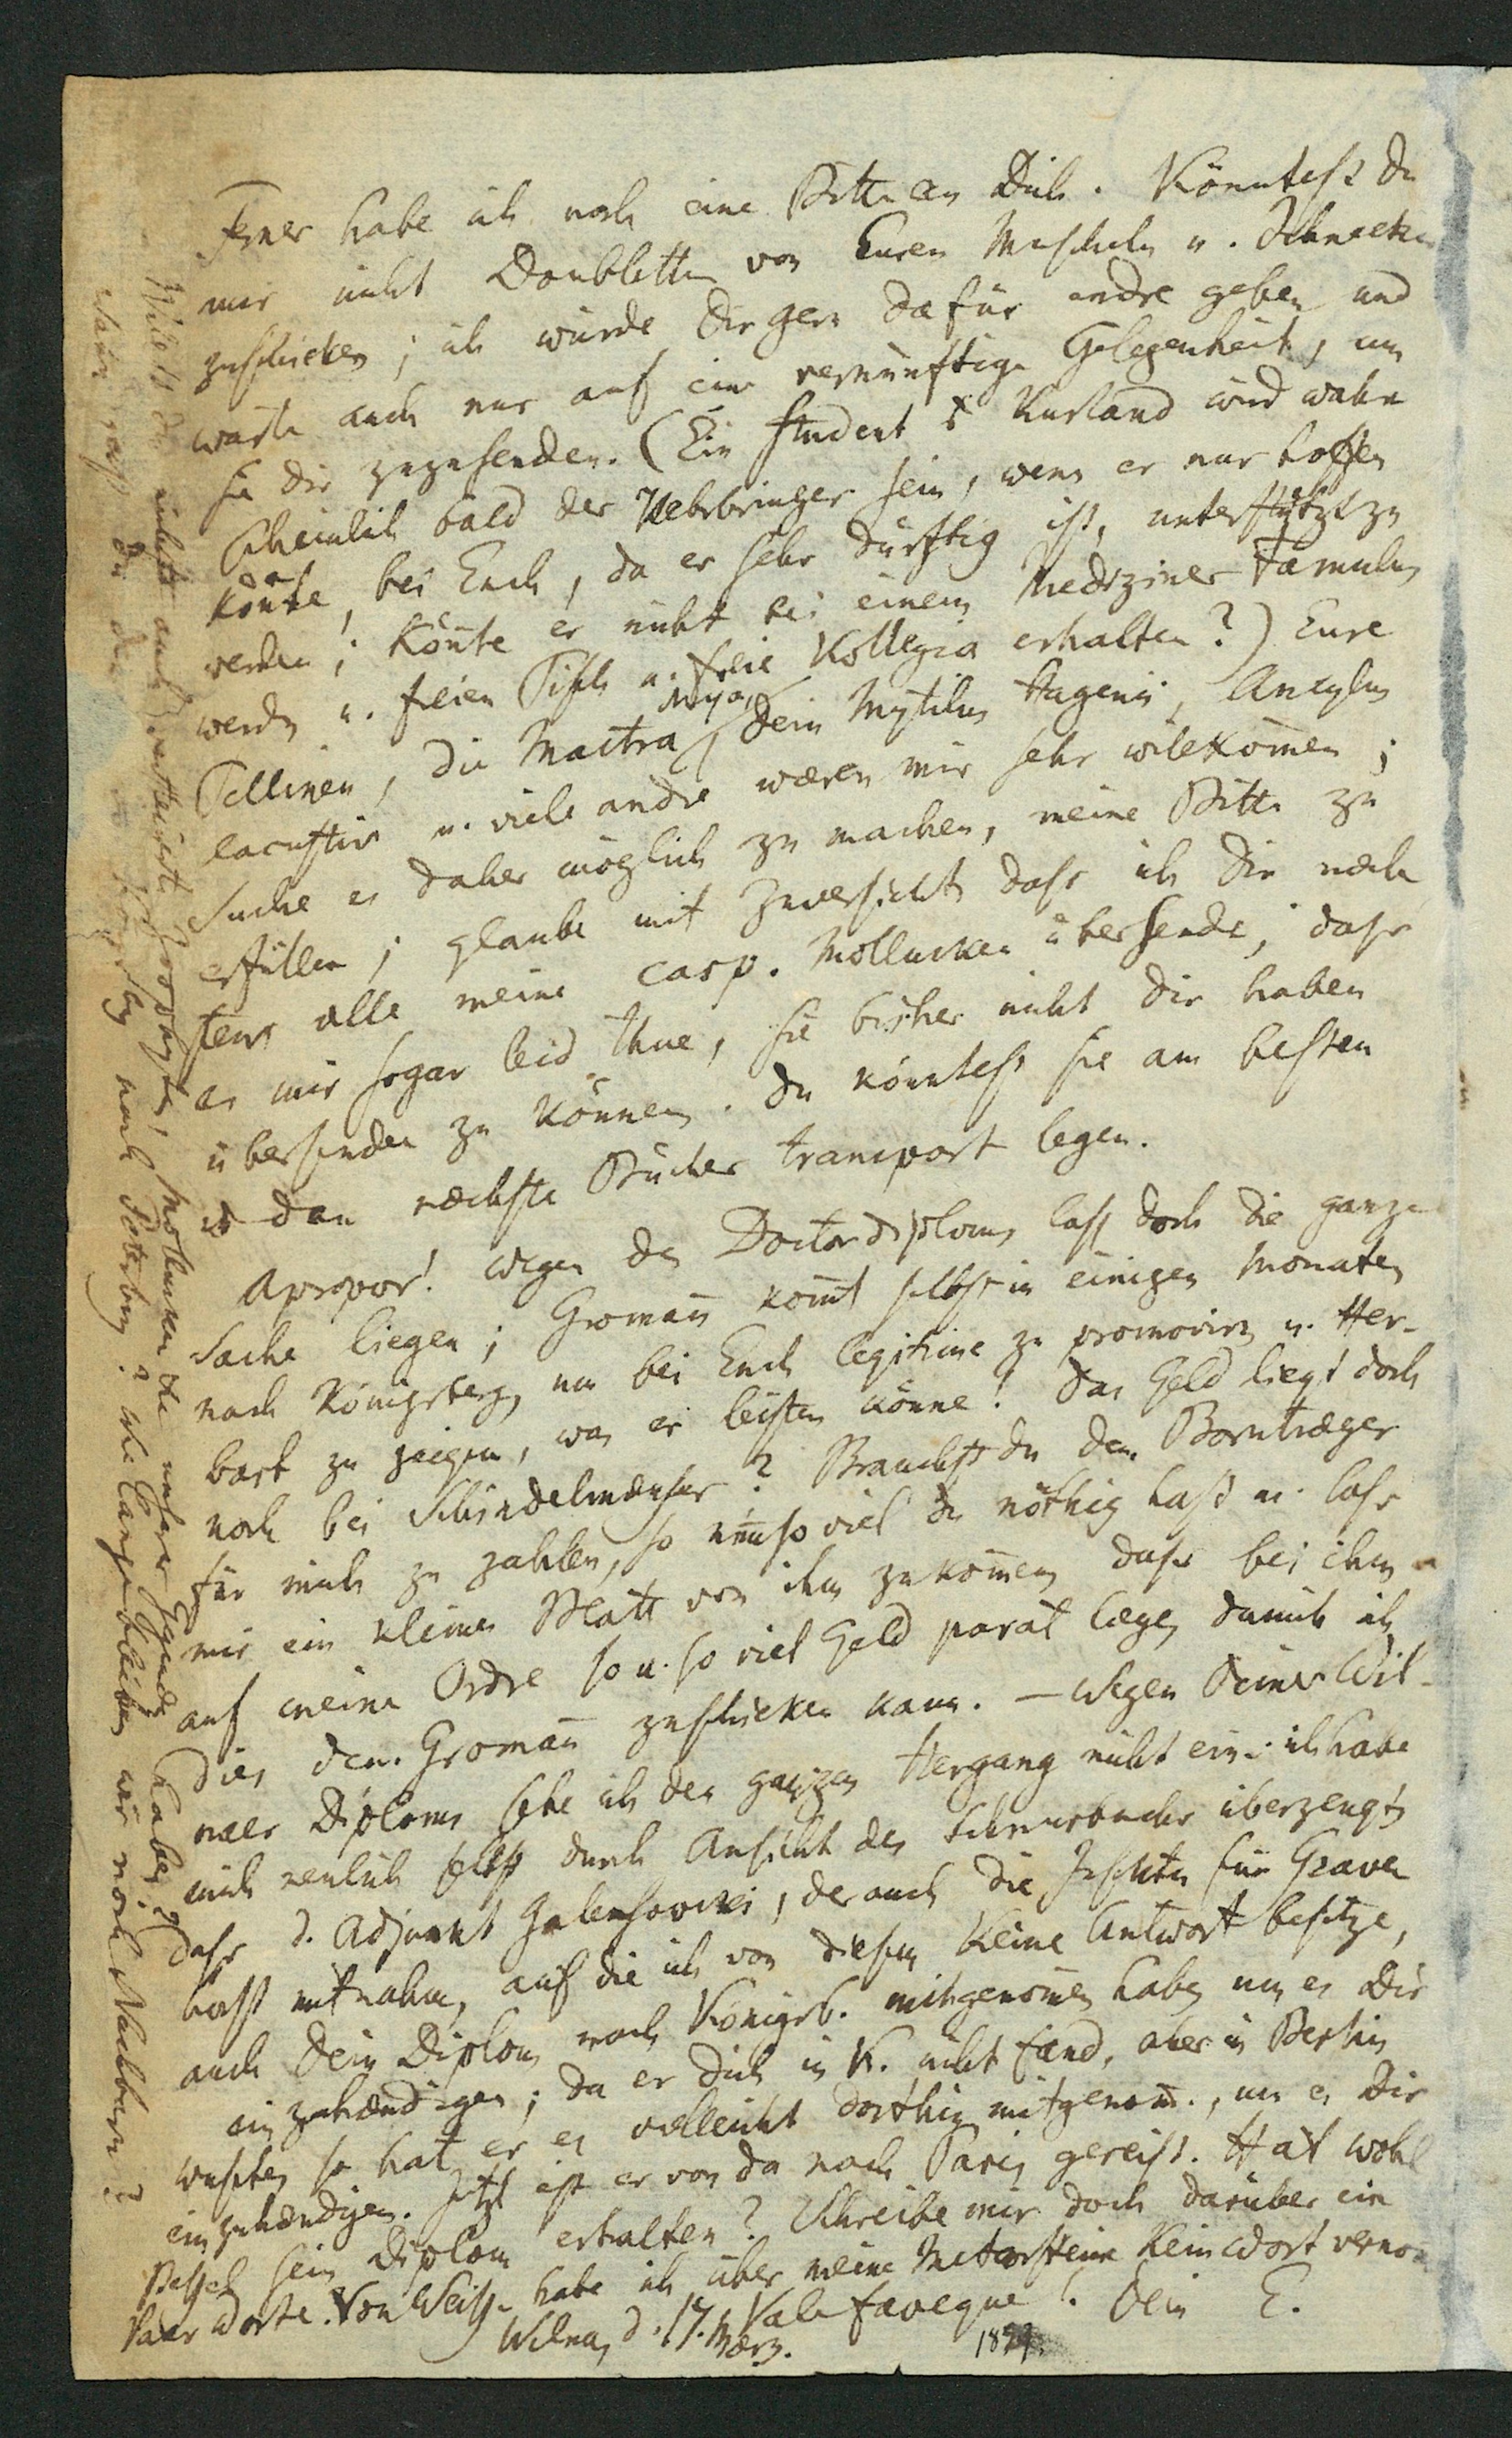 Ferner habe ich noch eine Bitte an Dich. Könntest Du
mir nicht Doubletten von Euren Muscheln u. Schnecken
zuschicken; ich würde Dir gern dafür andre geben und
warte auch nur auf eine vernünftige Gelegenheit, um
sie Dir zuzusenden. (Ein Student Kurland wird wahr
scheinlich bald der Ueberbringer sein, wenn er nur hoffen
könte, bei Euch, da er sehr dürftig ist, unterstützt zu
werden; könte er nicht bei einem Mediziner Famulus
werden u. freien Tisch u. freie Kollegia erhalten?) Eure
Tellinen, die Mactra, Mya, Dein Mytilus Hagenii, Ancylus
lacustris u. viele andre waeren mir sehr willkomen;
Suche es daher möglich zu machen, meine Bitte zu
erfüllen; glaube mit Zuversicht dass ich Dir nächs
tens alle meine casp. Mollusken übersende; dass
es mir sogar leid thue, sie bisher nicht Dir haben
übersenden zu können. Du könntest sie am besten
den nächste Bücher transport legen.
Apropos! wegen des Doctordiploms lass doch die ganze
Sache liegen; Gromañ komt selbst in einigen Monaten
nach Königsberg, um bei Euch legitime zu promoviren u. Her-
bart zu zeigen, was er leisten könne! Das Geld liegt doch
noch bei Schindelmeisser? Brauchst Du dem Borntraeger
für mich zu zahlen, so nim so viel Du nöthig hast u. lass
mir ein kleines Blatt von ihm zukomen dass bei ihm
auf meine Ordre so u. so viel Geld parat laege, damit ich
dies dem Gromañ zuschicken kann. – Wegen Deines Wil-
naer Diploms sehe ich den ganzen Hergang nicht ein; ich habe
mich neulich selbst durch Ansicht des Schnurbuchs überzeugt,
dass d. Adjunkt Galensowski, der auch die Insekten für Graven
horst mitnahm, auf die ich von diesem keine Antwort besitze,
auch Dein Diplom nach Königsb. mitgenomen habe, um es Dir
einzuhändigen; da er Dich in K. nicht fand, aber in Berlin
wusste, so hat er es vielleicht dorthin mitgenom., um es Dir
einzuhändigen. Jetzt ist er von da nach Paris gereist. Hat wohl
Bessel sein Diplom erhalten? Schreibe mir doch darüber ein
Paar Worte. Von Weiss habe ich über meine Meteorsteine kein Wort vernom
Vale faveque! Dein E.
Wilna, d. 17. Maerz. 1829.
Willst Du nicht auch versteinerte Zoophyten, Mollusken die unsere Gegend haben?
wann nach Petersburg? wie lange bleiben wir noch Nachbarn?